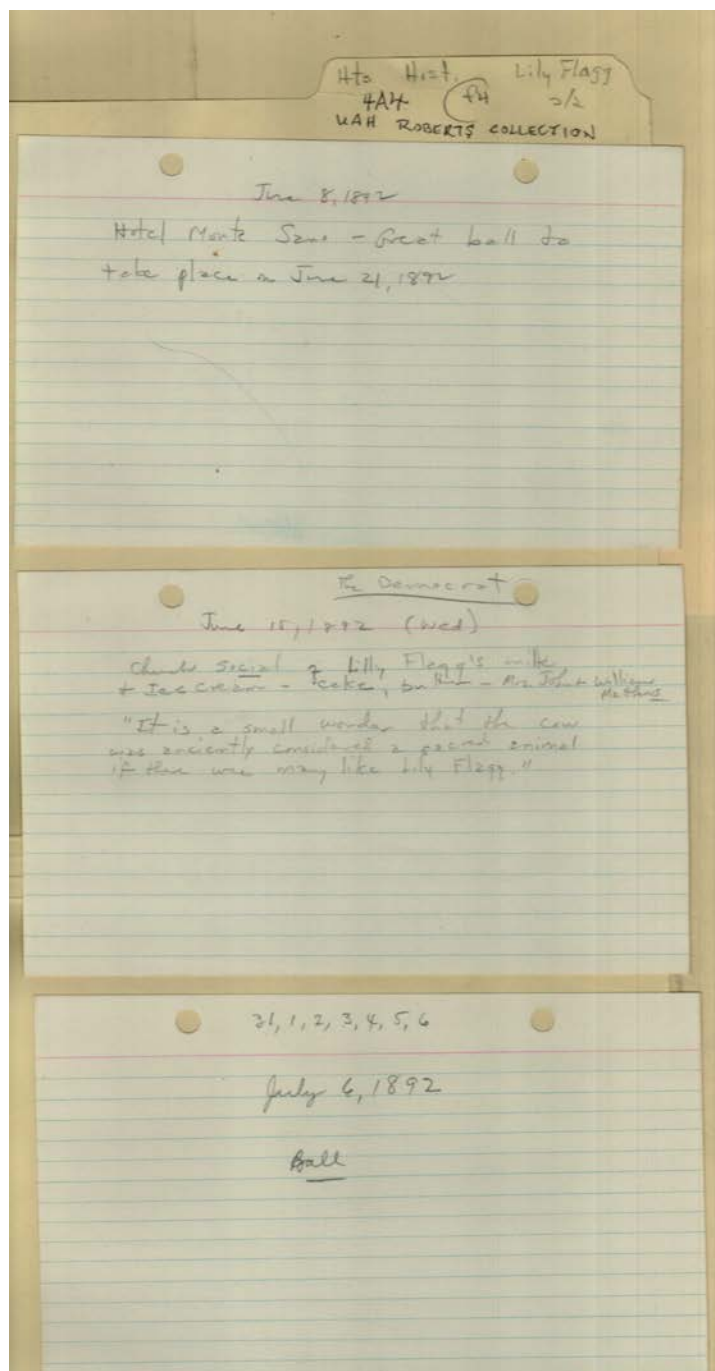 Hts Hist. Lily Flagg
4A4 f4 2/2
UAH ROBERTS COLLECTION
June 8, 1892
Hotel Monte Sano - Great ball to
take place on June 21, 1892
The Democrat
June 15, 1892 (Wed)
Church Social Lilly Flagg's milk
+ Ice cream - cake, - Mrs John + William
"It is a small wonder that the cow
was anciently considered a sacred animal
if there were many like Lily Flagg."
31, 1, 2, 3, 4, 5, 6
July 6, 1892
Ball